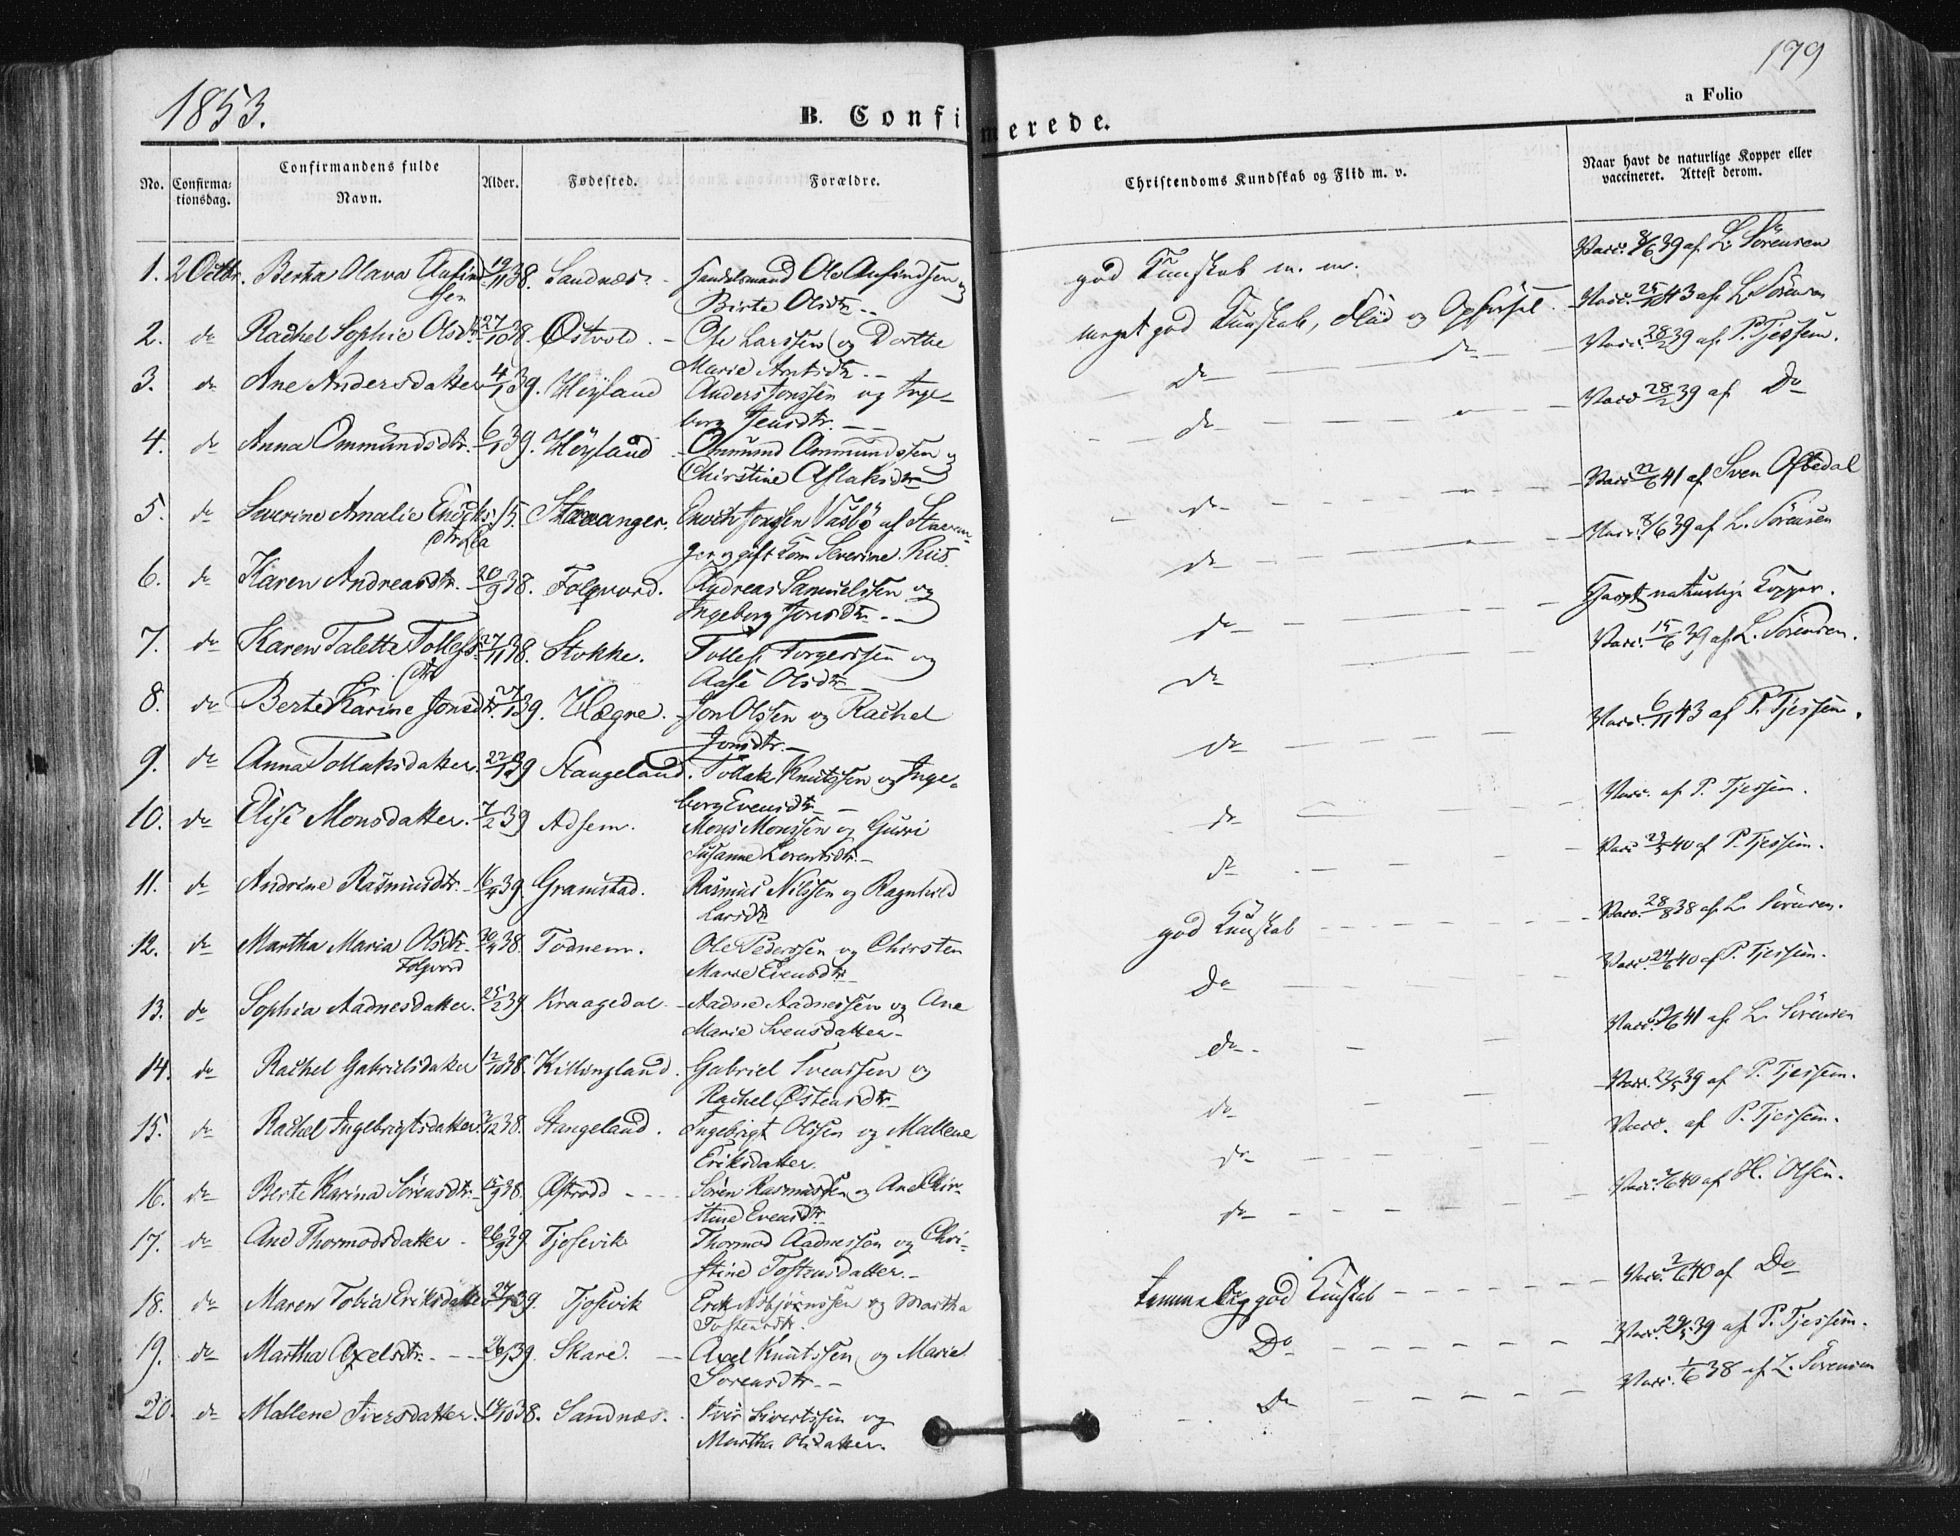 1853.
179
a Folio
B. Confirmerede.
No.
Confirma-
tionsdag.
Confirmandens fulde
Navn.
Alder.
Fødested.
Forældre.
Christendoms Kundskab og Flid m. v.
Naar havt de naturlige Kopper eller
vaccineret. Attest derom.
1. 2 Octbr. Berta Olava 19/11 38. Sandnæs. Handelsmand Ole Aufindsen og
Birte Olsdtr. god Kunskab m. m. Vacc. 8/6 39 af L. Sörensen
2. do Rachel Sophie Olsdtr. 27/10 38. Østvold. Ole Larssen og Dorthe
Marie meget god Kunskab, Flid og Opförsel Vacc. 25/10 43 af L. Sörensen
3. do Ane Andersdatter 4/1 39. Höyland Anders Jonssen og Inge-
borg Jensdtr. Do do Vacc. 28/2 39 af P. Tjessem.
4. do Anna Ommundsdtr. 6/1 39. Höyland Omund Ommundssen og
Christine Aslaksdtr do Vacc 28/2 39 af Do
5. do Severine Amalie Enochs- 15. Stavanger. Enoch Jonssen Vasbö af Stavan-
dtr
ger og gift Kom Severine Riis. do Vacc 22/6 41 af Sven Ofstedal
6. do Karen Andreasdtr. 20/9 38. Folqvord. Andreas Samuelssen og
Ingeborg Jonsdtr. do Vacc. 8/6 39 af L. Sörensen
7. do Karen Talette Tollefs- 27/11 38. Stokke. Tollef Torgerssen og
dtr
Aase Olsdtr do Havt naturlige Kopper.
8. do Berte Karine Jonsdtr. 27/1 39. Hægne. Jon Olssen og Rachel
Jonsdtr. do Vacc. 15/6 39 af L. Sörensen.
9. do Anna Tollaksdatter. 22/1 39 Stangeland. Tollak Knutssen og Inge-
borg Evensdtr do Vacc. 6/11 43 af P. Tjessem.
10. do Elise Monsdatter. 7/2 39 Adsem. Mons Monssen og Gurri
Susanne Lorentsdtr. do Vacc. af P. Tjessem.
11. do Andrine Rasmusdtr. 16/4 39. Gramstad. Rasmus Nilssen og Ragnhild
Larsdtr do Vacc 23/5 40 af P. Tjessem.
12. do Martha Maria Olsdtr. 30/4 38. Todnem. Ole Pederssen og Chirsten
Folqvord
Marie Evensdtr god Kunskab Vacc. 28/8 38 af L. Sörensen.
13. do Sophia Aadnesdatter. 25/2 39 Kraagedal Aadne Aadnessen og Ane
Marie Svensdatter Do Vacc. 24/6 40 af P. Tjessem.
14. do Rachel Gabrielsdatter 12/10 38. Killingland. Gabriel Svenssen og
Rachel Østensdtr do Vacc. 19/6 41 af L. Sörensen
15. do Rachel Ingebrigtsdatter 38. Stangeland. Ingebrigt Olssen og Mallene
Eriksdatter. do Vacc. 23/5 39 af P. Tjessem.
16. do Berte Karina Sörensdtr. 15/9 38. Østraadt Sören Rasmussen og Ane Chir-
stine Evensdtr do Vacc. af P. Tjessem.
17. do Ane Thormodsdatter 39. Tjosevik Thormod Aadnessen og Chri-
stine Tostensdatter. do Vacc. 2/6 40 af H. Olsen.
18. do Maren Tobia Eriksdatter 27/1 39. Tjosevik Erik Asbjörnssen og Martha
Tostensdtr. temmelig god Kunskab Vacc. 2/6 40 af Do
19. do Martha Axelsdtr. 39. Skare. Axel Knutssen og Marie
Sörensdtr. Do Vacc. 39 af P. Tjessem.
20. do Mallene Iversdatter. 14/10 38. Sandnæs. Iver Sivertssen og
Martha Olsdatter. Do Vacc. 1/6 38 af L. Sörensen